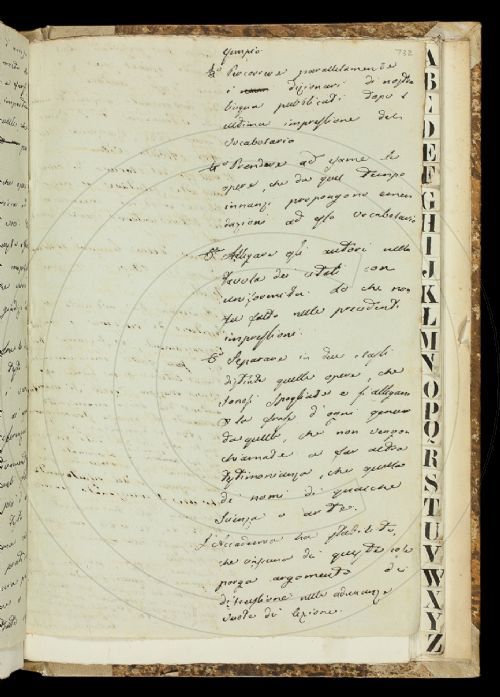 esempio
732
3º Percorrere parallelamente
i dizionari di nostra
lingua pubblicati dopo l'
ultima impressione del
vocabolario
4º Prendere ad esame le
opere, che da quel tempo
innanzi propongono emen
dazioni ad esso vocabolario
5º Allegare gli autori nella
tavola dei citati con
uniformità. Lo che non
fu fatto nelle precedenti
impressioni.
6º Separare in due classi
distinte quelle opere, che
sonosi spogliate e si allegano
per le frasi d'ogni genere
da quelle, che non vengon
chiamate a far altra
testimonianza, che quella
di nomi di qualche
scienza o arte.
L'Accademia ha stabilito,
che ciascuno dei quesiti
porga argomento di
discussione nelle adunanze
vuote di lezione.
A
B
C
D
E
F
G
H
I
J
K
L
M
N
O
P
Q
R
S
T
U
V
W
X
Y
Z